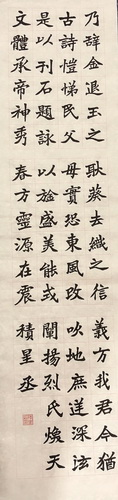 乃辭金退玉之耿葵去織之信義方我君今猶
古詩愷悌民父母實恐東風改吹地庶送深法
是以刊石題詠以旌盛美能或闡揚烈氏煥天
文體承帝神秀春方靈源在震積星丞